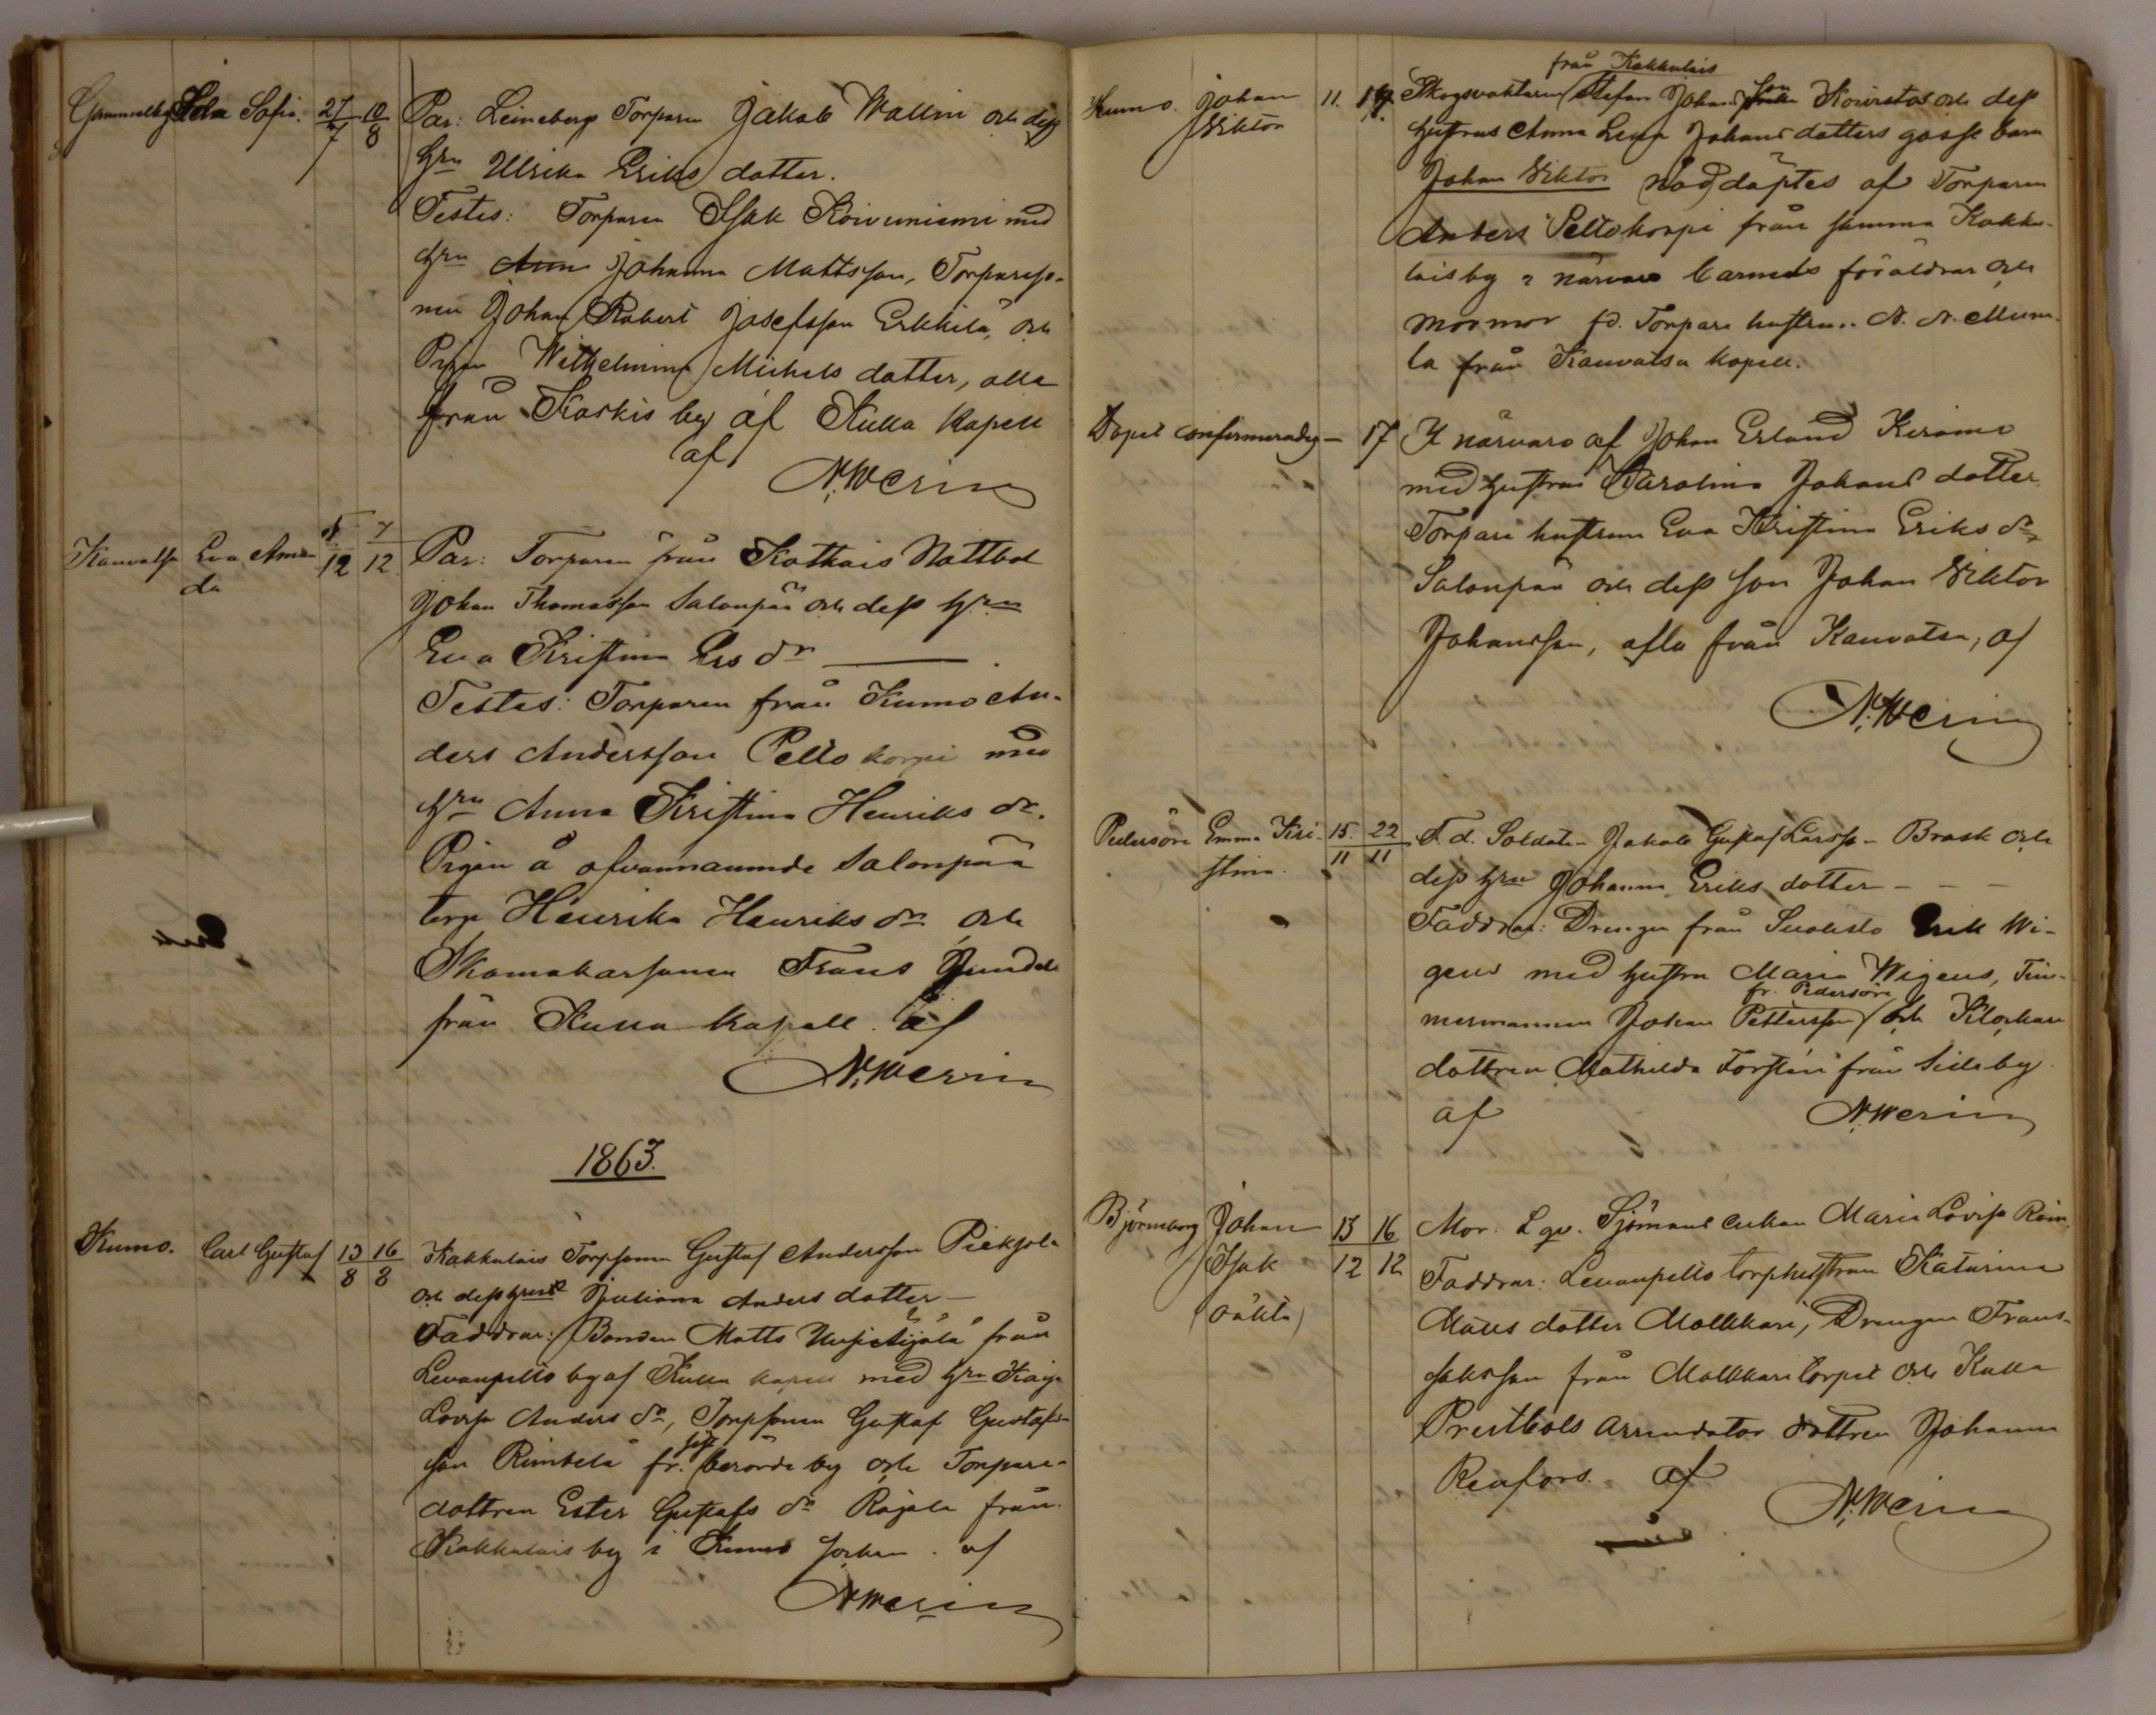 Sofia. 27/7 10/8 Par: Leinebergs Torparen Jakob Wallin och dess
Hru Ulrika Eriks dotter.
Testes: Torparen Isak Koivuniemi med
hru Johanna Mattsson, Torpareso-
nen Johan Robert Josefsson Erkkilä, och
Pigan Wilhelmina Michels dotter, alla
från Karkis by af Kulla Kapell
af
N. Werin
Kauvatsa Eva Aman- 5/12 7/12 Par: Torparen från Kothais Nattbol
da
Johan Thomasson Salonpää och dess hru
Eva Kristina Ers dr
Testes: Torparen från Kumo An-
ders Andersson Peltokorpi med
hru Anna Kristina Henriks dr.
Pigan å ofvannamnde Salonpää
torp Henrika Henriks dr och
Skomakarsonen Frans
från Kulla Kapell. af
N. Werin
1863.
Kumo. Carl Gustaf 13/8 16/8 Kakkulais Torpsonen Gustaf Andersson
och dess hru Juliana Anders dotter
Faddrar: Bonden Matts från
Levanpelto by af Kulla kapell med hru Kaija
Lovisa Anders dr, Torpsonen Gustaf Gustafs-
son Rintala fr. sist berörde by och Torpare-
dottren Ester Gustafs dr Rajala från
Kakkulais by i Kumo Socken. af
N. Werin
från Kakkulais
Kumo. Johan 11. 14. Skogsvaktaren Stefan Johansson Koivisto och dess
Viktor
hustrus Anna Lena Johans dotters gosse barn
Johan Viktor nöddöptes af Torparen
Anders Peltokorpi från samma Kakku-
lais by i närvaro barnets föräldrar och
mormor fd. Torpare hustrun. N. N.
la från Kauvatsa kapell.
Dopet confirmerades — 17 I närvaro af Johan Erland
med hustrun Karolina Johans dotter
Torpare hustrun Eva Kristina Eriks dr
Salonpää och dess son Johan Viktor
Johansson, alla från Kauvatsa, af
N. Werin
Pedersöre Emma Kri- 15/11 22/11 F. d. Soldaten Jakob Gustaf Larsson Brask och
stina
dess hru Johanna Eriks dotter
Faddrar: Drengen från Suolisto Erik Wi-
gens med hustru Maria Wigens, Tim-
fr. Pedersöre
mermannen Johan Pettersson och Klockare
dottren Mathilda Forstén från by
af N. Werin
Björneborg Johan 13/12 16/12 Mor. Lqv. Sjömans enkan Maria Lovisa
Isak
(oäkta)
Faddrar: Levanpelto torphustrun Katarina
Matts dotter Mollkari, Drengen Frans
Isaksson från Mollkari torpet och Kulla
Prestbols arrendator dottren Johanna
Renfors. af
N. Werin